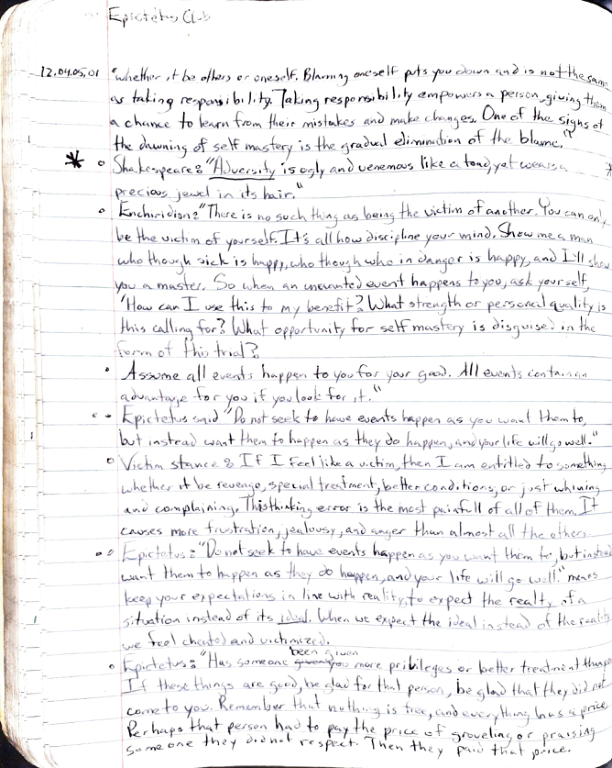 Epictetus Club
12.04.05.01 "whether it be others or oneself. Blaming oneself puts you down and is not the same
as taking responsibility. Taking responsibility empowers a person, giving them
a chance to learn from their mistakes and make changes. One of the signs of
the dawning of self mastery is the gradual elimination of the blame."
* Shakespeare: "Adversity is ugly and venemous like a toad, yet wears a
precious jewel in its hair."
Enchiridion: "There is no such thing as being the victim of another. You can only
be the victim of yourself. It's all how discipline your mind. Show me a man
who though sick is happy, who though who in danger is happy, and I'll show
you a master. So when an unwanted event happens to you, ask yourself,
'How can I use this to my benefit? What strength or personal quality is
this calling for? What opportunity for self mastery is disguised in the
form of this trial?
Assume all events happen to you for your good. All events contain an
advantage for you if you look for it."
Epictetus said "Do not seek to have events happen as you want them to,
but instead want them to happen as they do happen, and your life will go well."
Victim stance: If I feel like a victim, then I am entitled to something
whether it be revenge, special treatment, better conditions, or just whining
and complaining. This thinking error is the most painfull of all of them. It
causes more frustration, jealousy, and anger than almost all the others.
Epictetus: "Do not seek to have events happen as you want them to, but instead
want them to happen as they do happen, and your life will go well." means
keep your expectations in line with reality, to expect the realty of a
situation instead of its ideal. When we expect the ideal instead of the reality
we feel cheated and victimized.
been given
Epictetus: "Has someone you more privileges or better treatment than you
If these things are good, be glad for that person, be glad that they did not
come to you. Remember that nothing is free, and everything has a price.
Perhaps that person had to pay the price of groveling or praising
someone they did not respect. Then they paid that price.